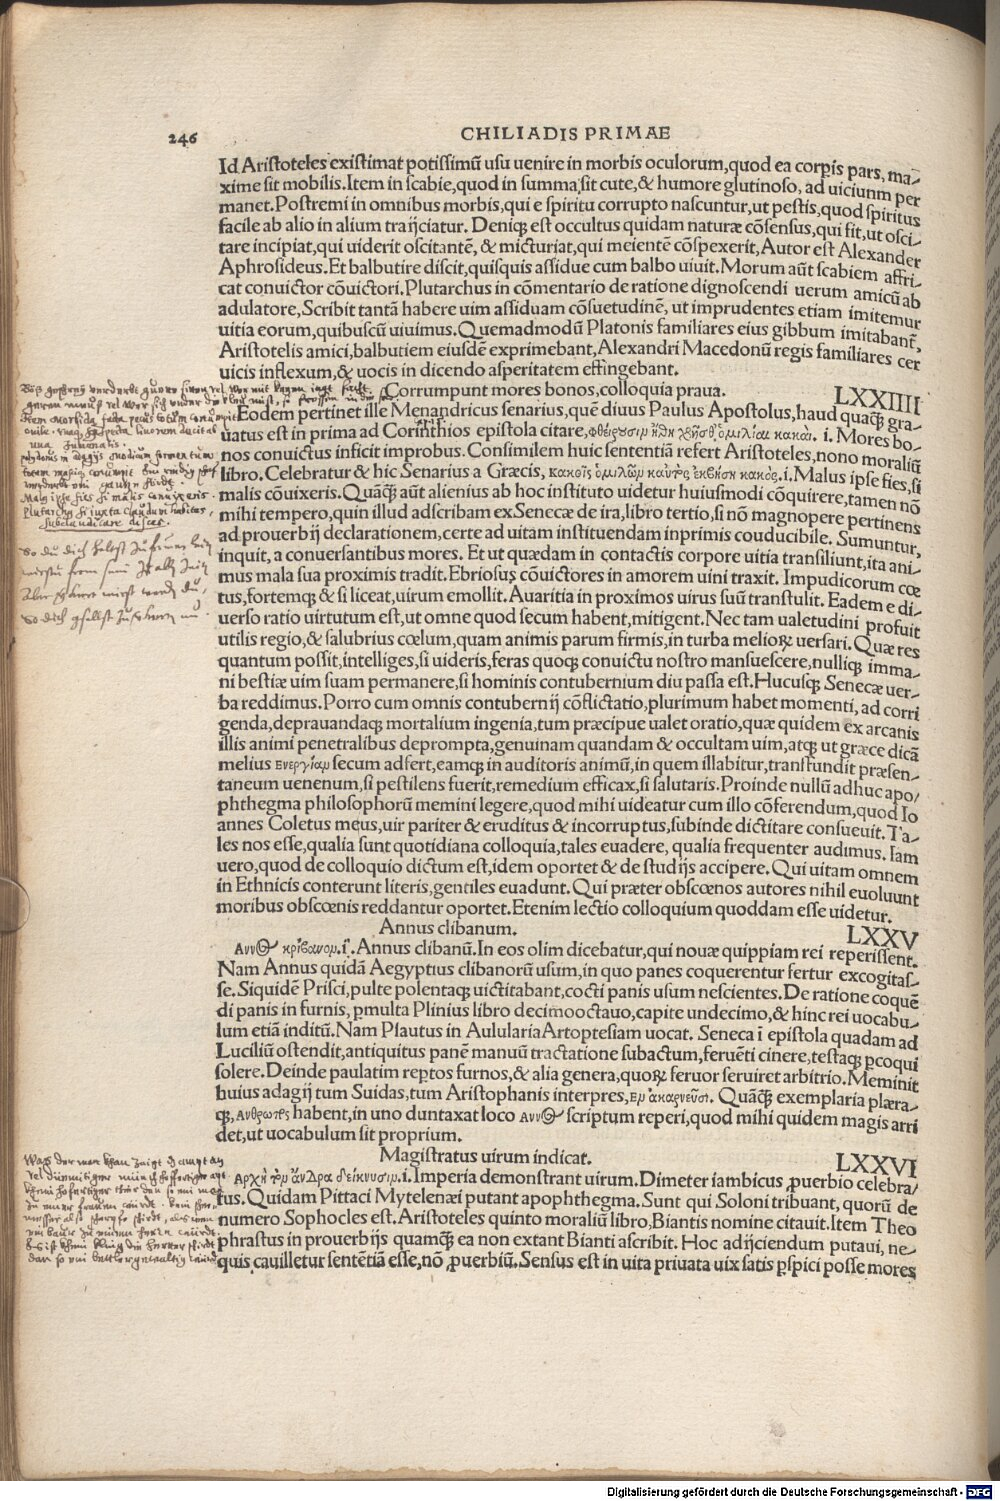 246
CHILIADIS PRIMAE
Id Aristoteles existimat potissimũ usu uenire in morbis oculorum,quod ea corp̱is pars, ma⸗
xime sit mobilis.Item in scabie,quod in summa sit cute,& humore glutinoso, ad uiciunm per
manet.Postremi in omnibus morbis,qui e spiritu corrupto nascuntur,ut pestis,quod spiritus
facile ab alio in alium traijciatur. Deniqꝫ est occultus quidam naturæ cõsensus,qui fit,ut osci⸗
tare incipiat,qui uiderit oscitantẽ, & micturiat,qui meientẽ cõspexerit, Autor est Alexander
Aphrosideus.Et balbutire discit,quisquis assidue cum balbo uiuit. Morum aũt scabiem affri⸗
cat conuictor cõuictori.Plutarchus in cõmentario de ratione dignoscendi uerum amicũ ab
adulatore,Scribit tantã habere uim assiduam cõsuetudinẽ, ut imprudentes etiam imitemur
uitia eorum,quibuscũ uiuimus.Quemadmodũ Platonis familiares eius gibbum imitabant̃,
Aristotelis amici,balbutiem eiusdẽ exprimebant,Alexandri Macedonũ regis familiares cer
uicis inflexum,& uocis in dicendo asperitatem effingebant.
Corrumpunt mores bonos,colloquia praua. LXXIIII
Eodem pertinet ille Menandricus senarius,quẽ diuus Paulus Apostolus,haud quaq̃ꝫ gra⸗
uatus est in prima ad Corinthios epistola citare,φθείρουσιν ἤθη χρῆσθ᾽ ὁμιλίαι κακαί. i. Mores bo⸗
nos conuictus inficit improbus. Consimilem huic sententiã refert Aristoteles,nono moraliũ
libro.Celebratur & hic Senarius a Græcis, κακοῖς ὁμιλῶν καὐτὸς ἐκβήσῃ κακός.i.Malus ipse fies,si
malis cõuixeris.Quãq̃ꝫ aũt alienius ab hoc instituto uidetur huiusmodi cõquirere,tamen nõ
mihi tempero,quin illud adscribam ex Senecæ de ira,libro tertio,si nõ magnopere pertinens
ad prouerbij declarationem,certe ad uitam instituendam inprimis couducibile. Sumuntur,
inquit,a conuersantibus mores. Et ut quædam in contactis corpore uitia transiliunt,ita ani⸗
mus mala sua proximis tradit. Ebriosus cõuictores in amorem uini traxit. Impudicorum cœ
tus,fortemqꝫ & si liceat,uirum emollit. Auaritia in proximos uirus suũ transtulit. Eadem e di⸗
uerso ratio uirtutum est,ut omne quod secum habent,mitigent. Nec tam ualetudini profuit
utilis regio,& salubrius cœlum,quam animis parum firmis,in turba melioꝝ uersari. Quæ res
quantum possit,intelliges,si uideris,feras quoqꝫ conuictu nostro mansuescere,nulliqꝫ imma⸗
ni bestiæ uim suam permanere,si hominis contubernium diu passa est.Hucusqꝫ Senecæ uer⸗
ba reddimus.Porro cum omnis contubernij cõflictatio,plurimum habet momenti, ad corri
genda,deprauandaqꝫ mortalium ingenia,tum præcipue ualet oratio,quæ quidem ex arcanis
illis animi penetralibus deprompta,genuinam quandam & occultam uim,atqꝫ ut græce dicã
melius ἐνέργιαν secum adfert,eamqꝫ in auditoris animũ,in quem illabitur,transfundit præsen⸗
taneum uenenum,si pestilens fuerit,remedium efficax,si salutaris. Proinde nullũ adhuc apo⸗
phthegma philosophorũ memini legere,quod mihi uideatur cum illo cõferendum,quod Io
annes Coletus meus,uir pariter & eruditus & incorruptus,subinde dictitare consueuit. Ta⸗
les nos esse,qualia sunt quotidiana colloquia,tales euadere, qualia frequenter audimus. Iam
uero,quod de colloquio dictum est,idem oportet & de studijs accipere. Qui uitam omnem
in Ethnicis conterunt literis,gentiles euadunt. Qui præter obscœnos autores nihil euoluunt
moribus obscœnis reddantur oportet.Etenim lectio colloquium quoddam esse uidetur.
Annus clibanum. LXXV
Αννος κρίβανον.i. Annus clibanũ.In eos olim dicebatur,qui nouæ quippiam rei reperissent.
Nam Annus quidã Aegyptius clibanorũ usum,in quo panes coquerentur fertur excogitas⸗
se.Siquidẽ Prisci,pulte polentaqꝫ uictitabant,cocti panis usum nescientes. De ratione coquẽ
di panis in furnis, ꝑmulta Plinius libro decimooctauo,capite undecimo,& hinc rei uocabu⸗
lum etiã inditũ. Nam Plautus in Aulularia Artoptesiam uocat. Seneca ĩ epistola quadam ad
Luciliũ ostendit,antiquitus panẽ manuũ tractatione subactum,feruẽti cinere,testaqꝫ ꝑcoqui
solere. Deinde paulatim reꝑtos furnos,& alia genera,quoꝝ feruor seruiret arbitrio. Meminit
huius adagij tum Suidas,tum Aristophanis interpres,Εν ἀκαρνεῦσι. Quãq̃ꝫ exemplaria plæra⸗
qꝫ,Ανθρωπος habent,in uno duntaxat loco Αννος scriptum reperi,quod mihi quidem magis arri
det,ut uocabulum sit proprium.
Magistratus uirum indicat. LXXVI
Αρχὴ τὸν ἄνδρα δείκνυσιν.i. Imperia demonstrant uirum. Dimeter iambicus ꝓuerbio celebra⸗
tus. Quidam Pittaci Mytelenæi putant apophthegma. Sunt qui Soloni tribuant, quorũ de
numero Sophocles est. Aristoteles quinto moraliũ libro,Biantis nomine citauit. Item Theo
phrastus in prouerbijs quamq̃ꝫ ea non extant Bianti ascribit. Hoc adijciendum putaui, ne⸗
quis cauilletur sentẽtiã esse,nõ ꝓuerbiũ. Sensus est in uita priuata uix satis ꝑspici posse mores
Digitalisierung gefördert durch die Deutsche Forschungsgemeinschaft - DFG